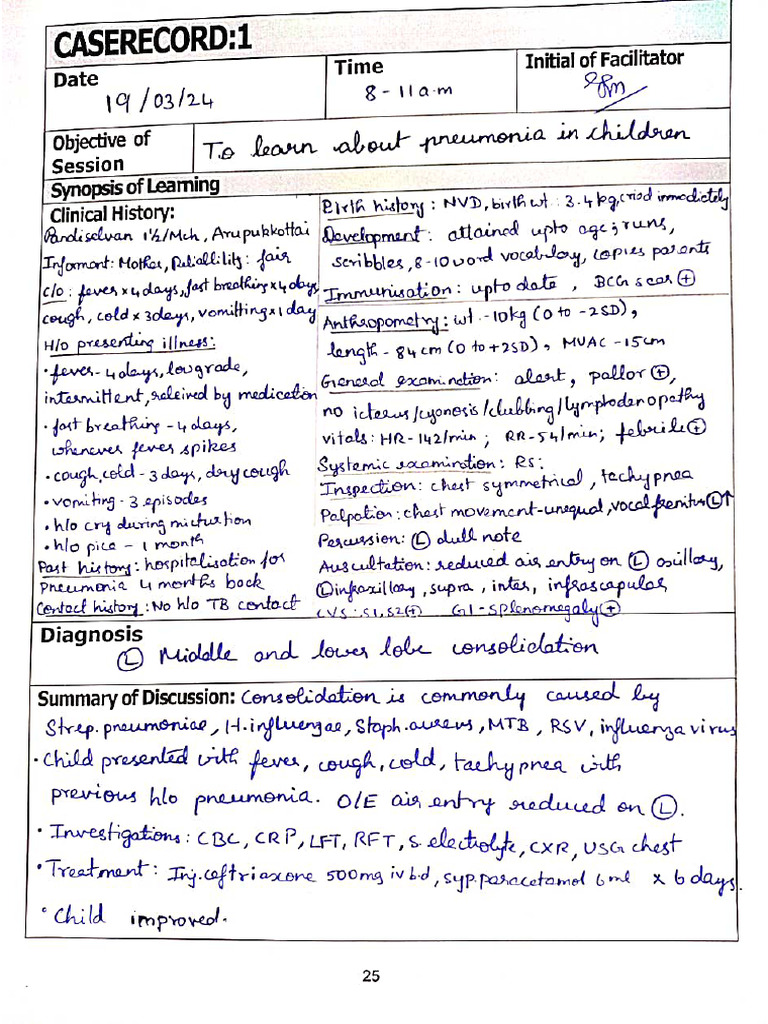 CASERECORD:1
Date
19/03/24
Time
8-11a.m
Initial of Facilitator
Objective of
Session
To learn about pneumonia in children
Synopsis of Learning
Clinical History:
Pandiselvan 1½/Mch, Arupukkottai
Informant: Mother, Reliability: fair
c/o: fever x 4 days, fast breathing x 4 days
cough, cold x 3 days, vomitting x 1 day
H/o presenting illness:
• fever - 4 days, low grade,
intermittent, releived by medication
• fast breathing - 4 days,
whenever fever spikes
• cough, cold - 3 days, dry cough
• vomiting - 3 episodes
• h/o cry during micturtion
• h/o pica - 1 month
Past history: hospitalisation for
Pneumonia 4 months back
Contact history: No h/o TB contact
Birth history: NVD, birth wt: 3.4 kg, cried immediately
Development: attained upto age; runs,
scribbles, 8-10 word vocabulary, copies parents
Immunisation: upto date, BCG scar ⊕
Anthropometry: wt - 10kg (0 to -2SD),
length - 84 cm (0 to +2SD), MUAC - 15cm
General examination: alert, pallor ⊕,
no icterus/cyanosis/clubbing/lymphadenopathy
vitals: HR-142/min; RR-54/min; febrile ⊕
Systemic examination: RS:
Inspection: chest symmetrical, tachypnea
Palpation: chest movement-unequal, vocal fremitus Ⓛ↑
Percussion: Ⓛ dull note
Auscultation: reduced air entry on Ⓛ axillary,
Ⓛ infraxillary, supra, inter, infrascapular
CVS: S1, S2 ⊕ GI - Splenomegaly ⊕
Diagnosis
Ⓛ Middle and lower lobe consolidation
Summary of Discussion: Consolidation is commonly caused by
Strep. pneumoniae, H. influenzae, Staph. aureus, MTB, RSV, influenza virus
• Child presented with fever, cough, cold, tachypnea with
previous h/o pneumonia. O/E air entry reduced on Ⓛ.
• Investigations: CBC, CRP, LFT, RFT, S. electrolyte, CXR, USG chest
• Treatment: Inj. ceftriaxone 500mg iv b.d, syp. paracetamol 6 ml x 6 days.
• Child improved.
25